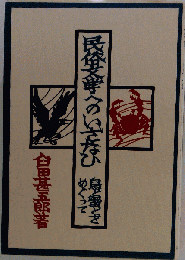 民俗文学へのいざなひ
臼田甚五郎著